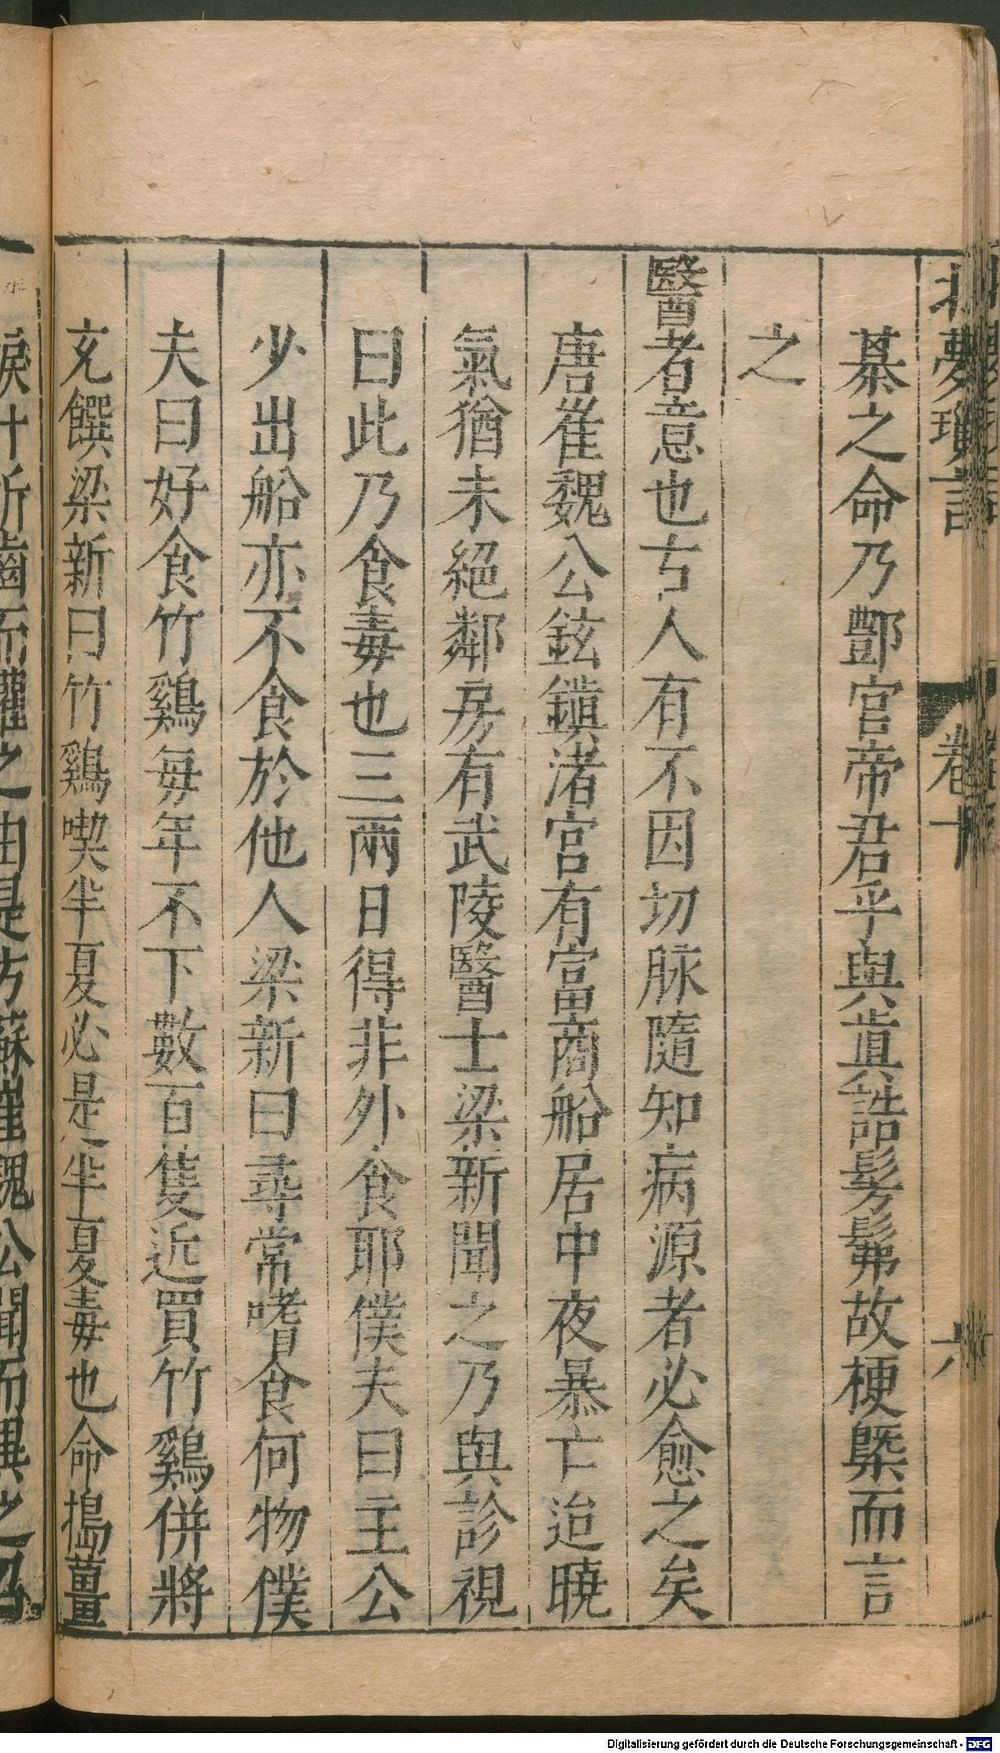 北夢瑣言 卷十 六
綦之命乃酆官帝君乎與眞誥髣髴故梗槩而言
之
醫者意也古人有不因切脉隨知病源者必愈之矣
唐崔魏公鉉鎮渚宮有富商船居中夜暴亡迨曉
氣猶未絕鄰房有武陵醫士梁新聞之乃與診視
曰此乃食毒也三兩日得非外食耶僕夫曰主公
少出船亦不食於他人梁新曰尋常嗜食何物僕
夫曰好食竹鷄每年不下數百隻近買竹鷄併將
充饌梁新曰竹鷄喫半夏必是半夏毒也命搗薑
捩汁折齒而灌之由是方蘇崔魏公聞而異之召
Digitalisierung gefördert durch die Deutsche Forschungsgemeinschaft - DFG